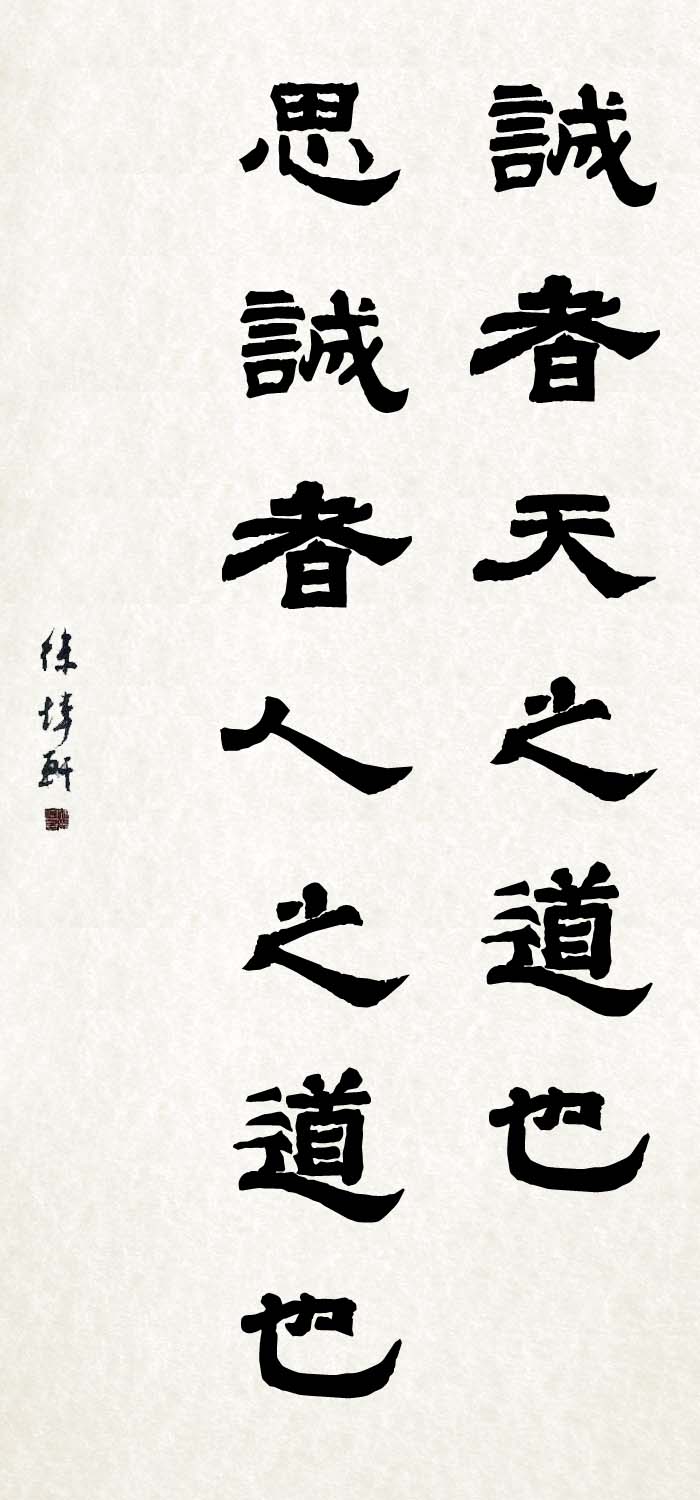 誠者天之道也
思誠者人之道也